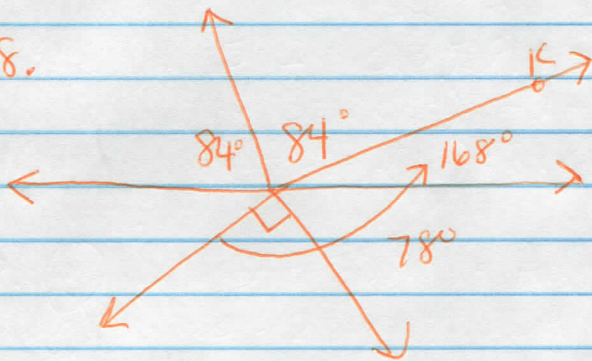 8.
K
84° 84°
168°
78°